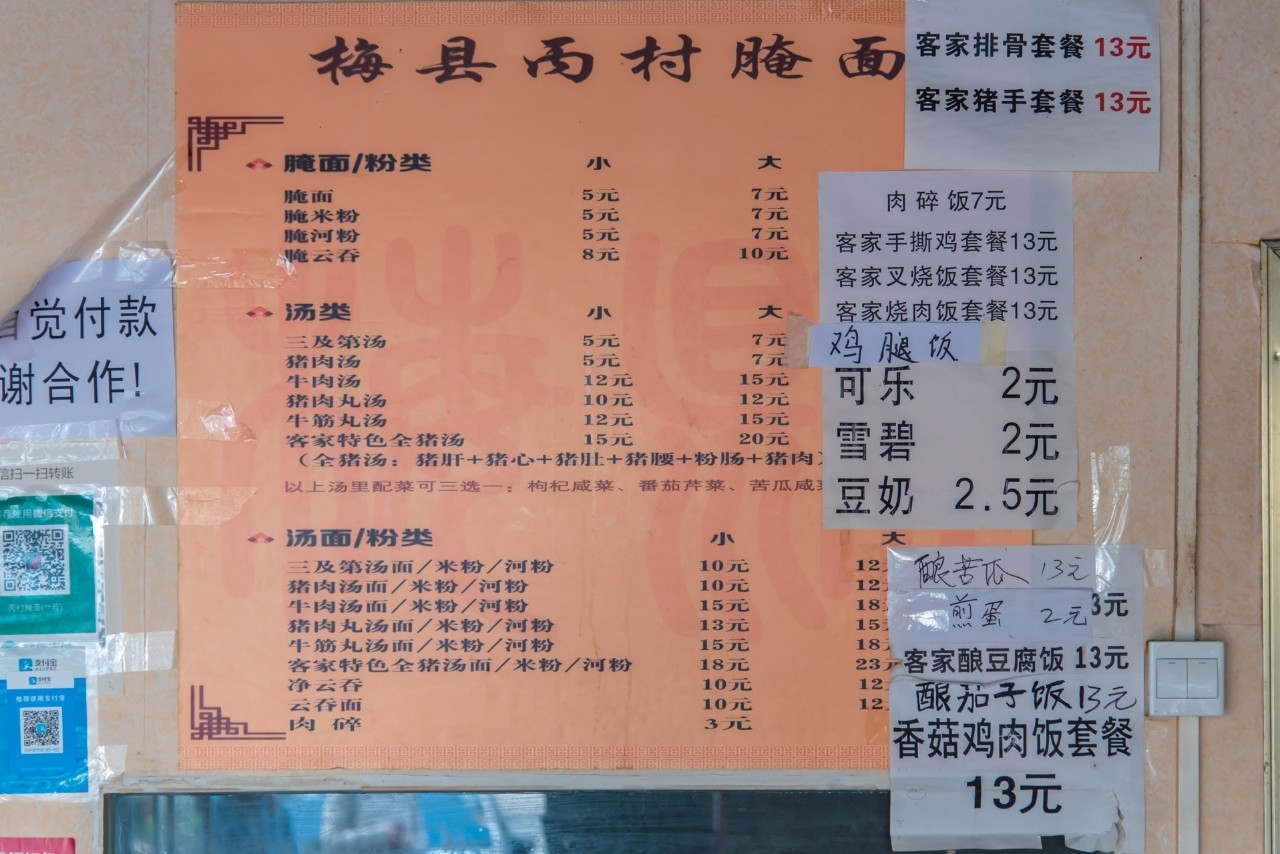 梅县丙村腌面
腌面/粉类 小 大
腌面 5元 7元
腌米粉 5元 7元
腌河粉 5元 7元
腌云吞 8元 10元
汤类 小 大
三及第汤 5元 7元
猪肉汤 5元 7元
牛肉汤 12元 15元
猪肉丸汤 10元 12元
牛筋丸汤 12元 15元
客家特色全猪汤 15元 20元
（全猪汤：猪肝+猪心+猪肚+猪腰+粉肠+猪肉）
以上汤里配菜可三选一：枸杞咸菜、番茄芹菜、苦瓜咸菜
汤面/粉类 小 大
三及第汤面/米粉/河粉 10元 12
猪肉汤面/米粉/河粉 10元 12
牛肉汤面/米粉/河粉 15元 18
猪肉丸汤面/米粉/河粉 13元 15
牛筋丸汤面/米粉/河粉 15元 18
客家特色全猪汤面/米粉/河粉 18元 23
净云吞 10元 12
云吞面 10元 12
肉 碎 3元
客家排骨套餐 13元
客家猪手套餐 13元
肉 碎 饭7元
客家手撕鸡套餐13元
客家叉烧饭套餐13元
客家烧肉饭套餐13元
鸡腿饭
可乐 2元
雪碧 2元
豆奶 2.5元
酿苦瓜 13元
3元
煎蛋 2元
客家酿豆腐饭 13元
酿茄子饭13元
香菇鸡肉饭套餐
13元
自觉付款
谢合作!
信扫一扫转账
推荐使用微信支付
支付宝
支付宝
推荐使用支付宝